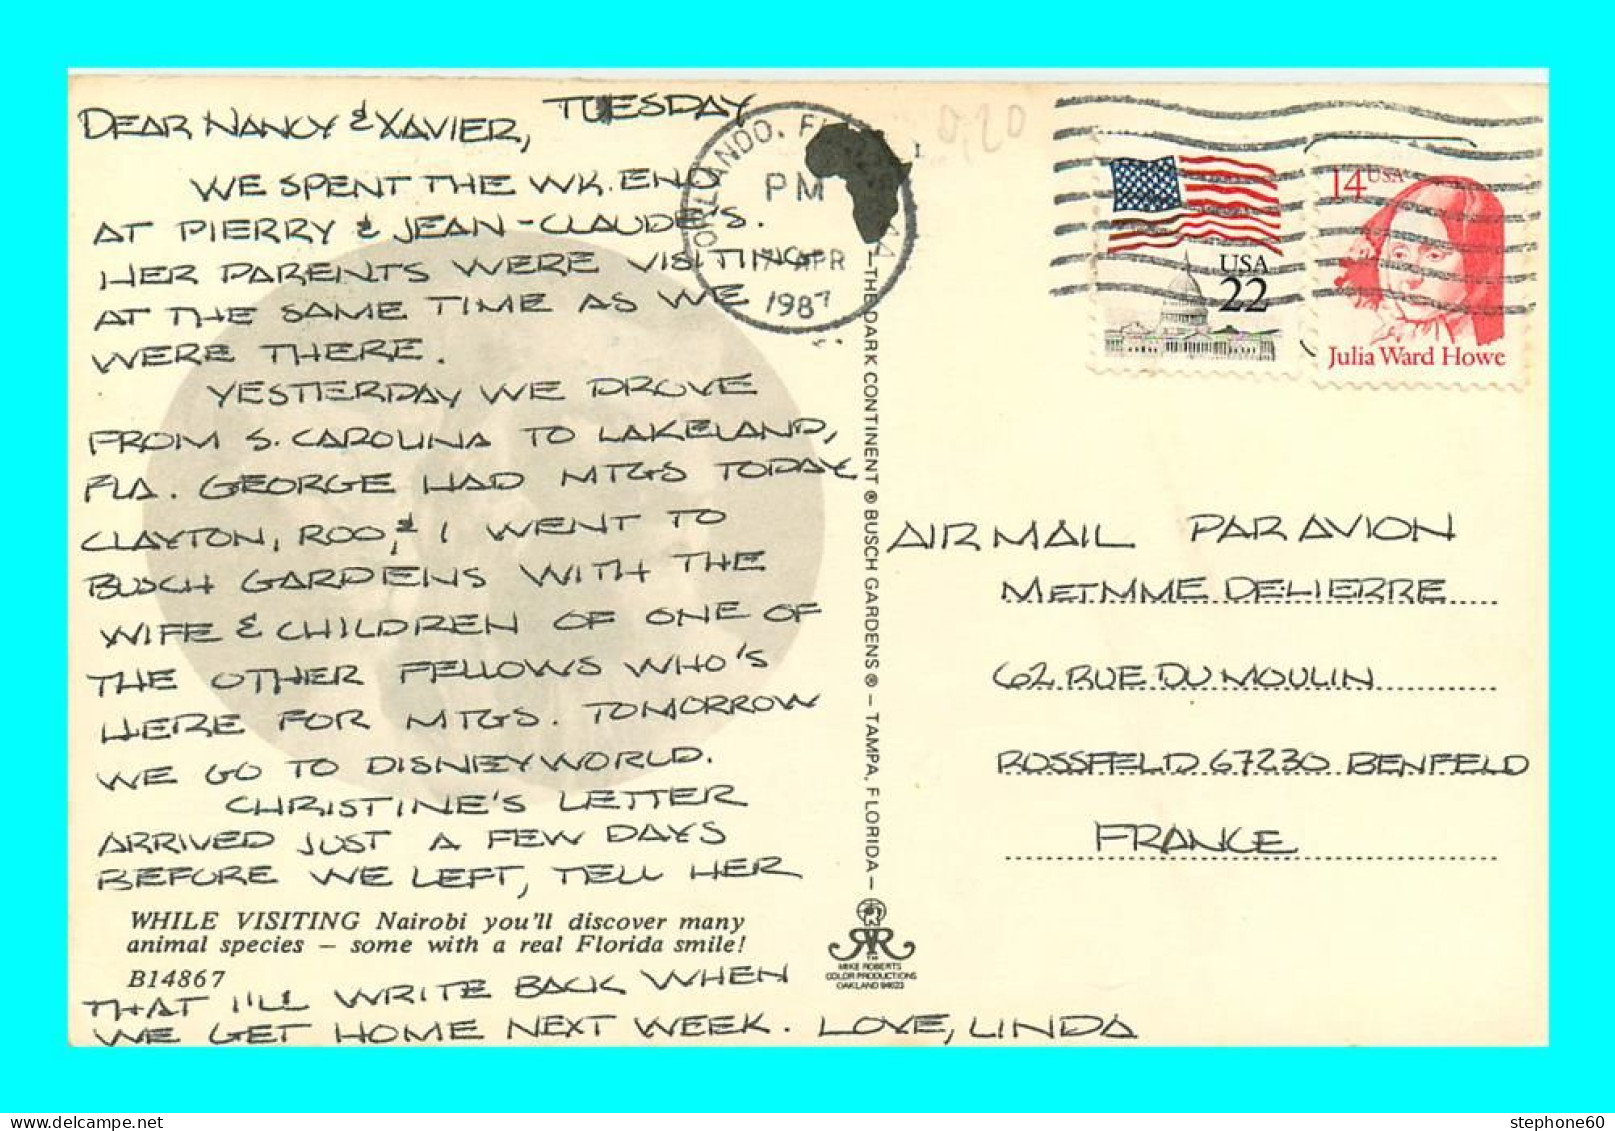 TUESDAY
DEAR NANCY & XAVIER,
WE SPENT THE WK. END
AT PIERRY & JEAN-CLAUDE'S.
HER PARENTS WERE VISITING
AT THE SAME TIME AS WE
WERE THERE.
YESTERDAY WE DROVE
FROM S. CAROLINA TO LAKELAND,
FLA. GEORGE HAD MTGS TODAY
CLAYTON, ROO, & I WENT TO
BUSCH GARDENS WITH THE
WIFE & CHILDREN OF ONE OF
THE OTHER FELLOWS WHO'S
HERE FOR MTGS. TOMORROW
WE GO TO DISNEYWORLD.
CHRISTINE'S LETTER
ARRIVED JUST A FEW DAYS
BEFORE WE LEFT, TELL HER
WHILE VISITING Nairobi you'll discover many
animal species — some with a real Florida smile!
B14867
THAT I'LL WRITE BACK WHEN
WE GET HOME NEXT WEEK. LOVE, LINDA
ORLANDO, FL
PM
APR
1987
—THE DARK CONTINENT ® BUSCH GARDENS ® — TAMPA, FLORIDA —
MIKE ROBERTS
COLOR PRODUCTIONS
OAKLAND 94623
0,20
USA
22
14 USA
Julia Ward Howe
AIR MAIL PAR AVION
M ET MME DELIERRE
62 RUE DU MOULIN
ROSSFELD 67230 BENFELD
FRANCE
stephone60